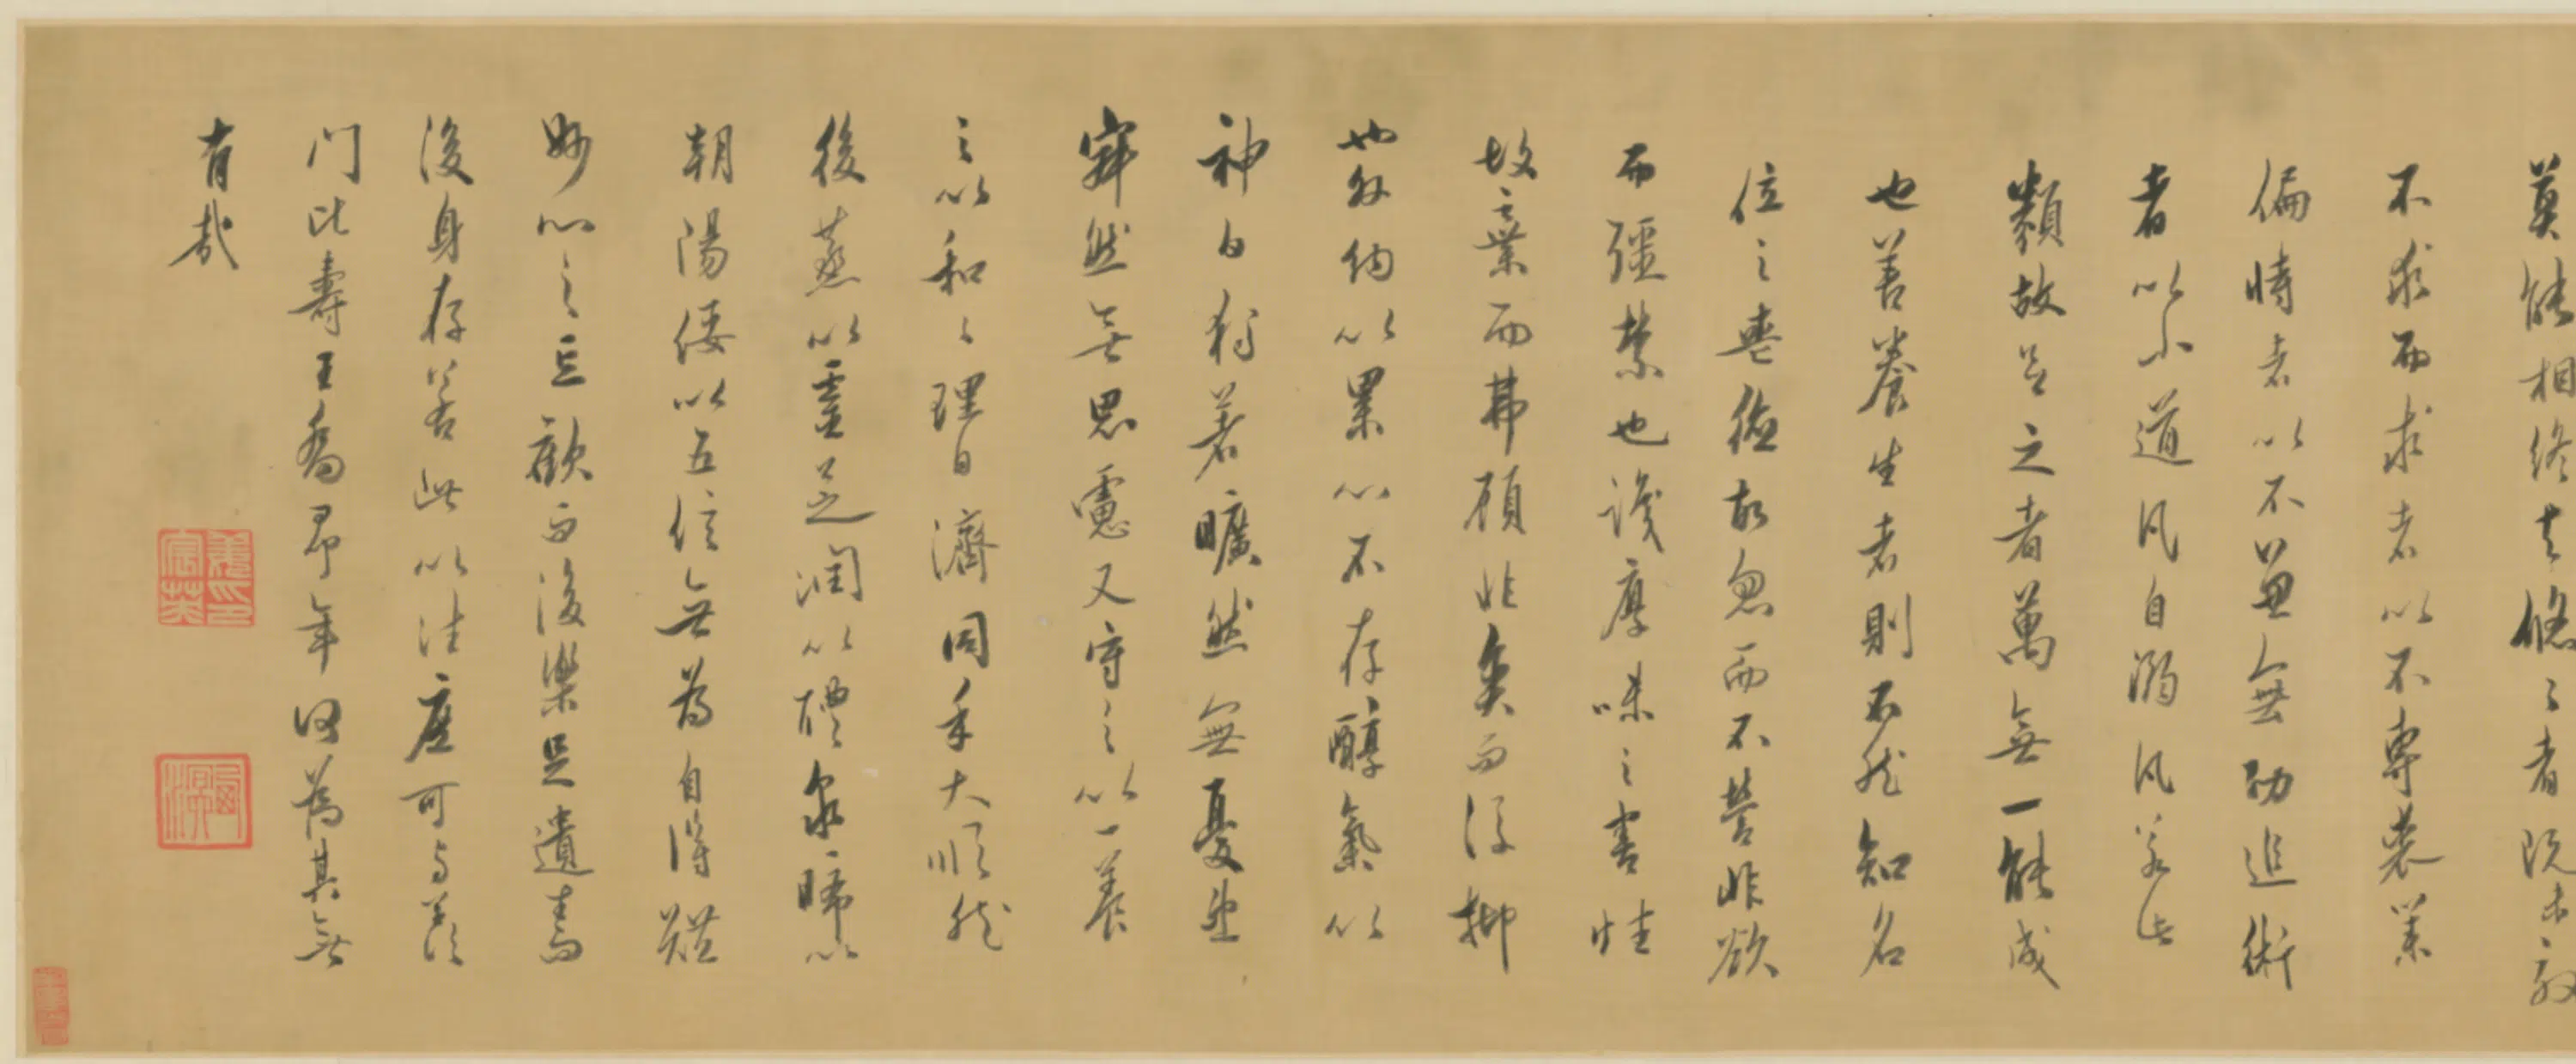 莫能相終夫悠〻者既未效
不求而求者以不專喪業
偏恃者以不兼無功追術
者以小道凡自溺凡若此
類故欲之者萬無一能成
也善養生者則不然知名
位之喪德故忽而不營非欲
而彊禁也識厚味之害性
故棄而弗顧非貪而後抑
也外物以累心不存醇氣以
神白獨著曠然無憂患
寂然無思慮又守之以一養
之以和〻理日濟同乎大順然
後蒸以靈芝潤以醴泉晞以
朝陽綏以五絃無為自得體
妙心之忘歡而後樂足遺生而
後身存若此以往庶可與羨
門比壽王喬爭年何為其無
有哉